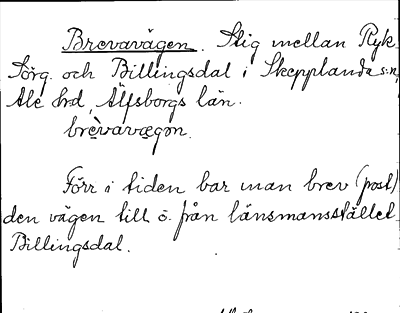 Brevavägen. Stig mellan Ryk-
Törq. och Billingsdal i Skepplanda s:n,
Ale hrd, Älfsborgs län.
brèvavægon.
Förr i tiden bar man brev (post)
den vägen till ö. från länsmansstället
Billingsdal.